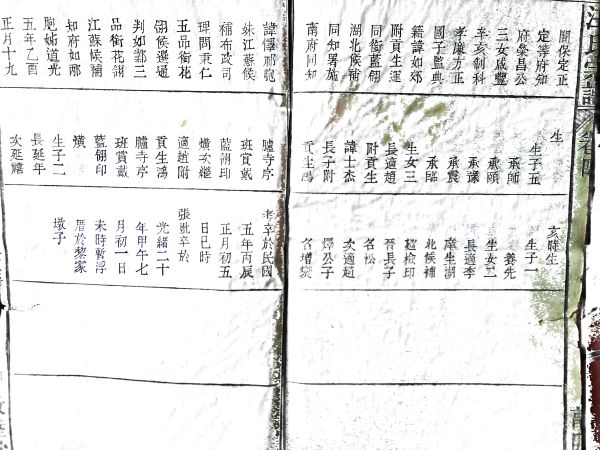 關保定正
定等府知
府榮昌公
三女戚豐
辛亥制科
孝廉方正
國子監典
籍諱如郊
附貢生運
同銜藍翎
湖北候補
同知署施
南府同知
諱懌郎
妹江蘇候
補布政司
理問秉仁
五品銜花
翎候選通
判如鄴三
品銜花翎
江蘇候補
知府如郡
胞姊道光
五年乙酉
正月十九
生
生子五
承師
承頤
承謙
承震
承臨
生女三
長適趙
附貢生
諱士杰
長子附
貢生鴻
臚寺序
班賞戴
藍翎印
熿次繼
適趙附
貢生鴻
臚寺序
班賞戴
藍翎印
熿
生子二
長延年
次延
亥時生
生子一
養先
生女二
長適李
庠生湖
北候補
經檢印
晉長子
名松
次適趙
公子
名增
考卒於民國
五年丙辰
正月初五
日巳時
張氏卒於
光緒二十
年甲午七
月初一日
未時暫浮
厝於黎家
墩子